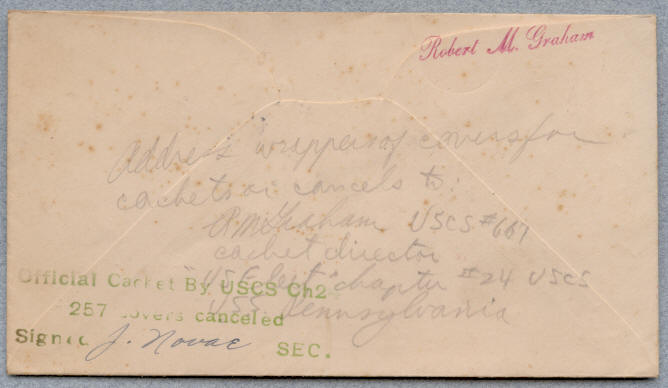 Robert M. Graham
Address wrappers of covers for
cachets or cancels to:
R.M. Graham USCS #667
cachet director
"USF Leit" chapter #24 USCS
USS Pennsylvania
Official Cachet By USCS Ch2
257 covers canceled
Signed J. Novac SEC.